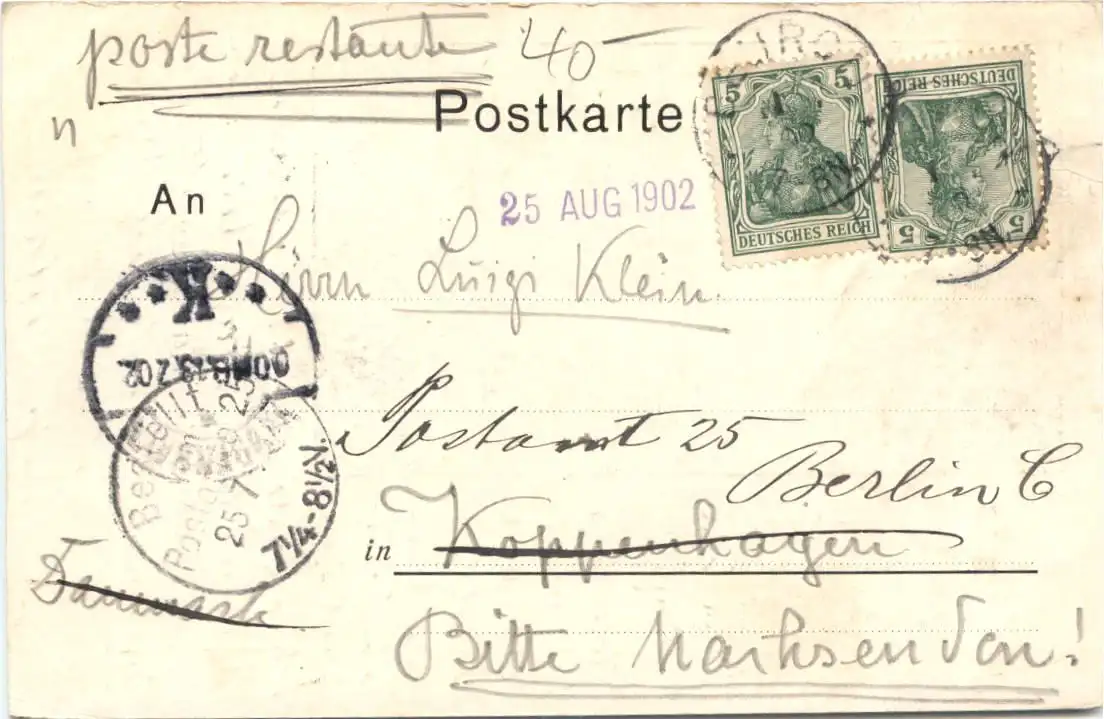 poste restante 40
Postkarte
5 5
DEUTSCHES REICH
DEUTSCHES REICH
5 5
n
An
25 AUG 1902
Herrn Luigi Klein
K
13.7.02
Bestellt
Postamt
25
25 7
7¼-8½N.
Postamt 25
Berlin C
in Koppenhagen
Danmark
Bitte Nachsenden!